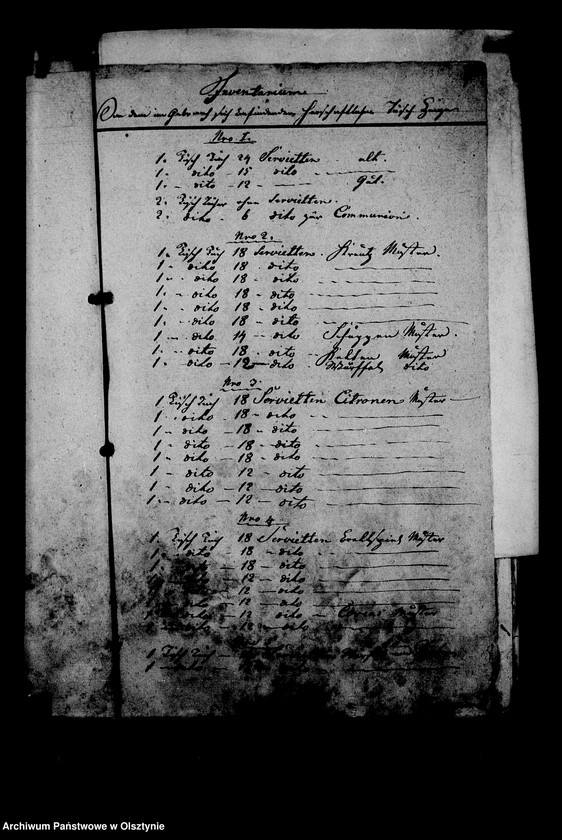 Inventarium
Von dem im Gebrauch sich befindenden Herschaftlichen Tisch Zeuge
Nro 1.
1. Tisch Tuch 24 Servietten - alt.
1. - dito - 15 dito
1. - dito - 12 - Gut.
2. Tisch Tücher ohne Servietten.
2. dito - 6 dito zur Communion.
Nro 2.
1. Tisch Tuch 18 Servietten. Kreutz Muster.
1. - dito 18. dito
1. - dito 18 - dito
1. - dito 18 - dito
1. - dito 18 - dito
1. - dito 18 - dito
1. - dito 14 - dito Schuppen Muster.
1. - dito 18. dito - Muster
1. - dito - 12 - dito - Würffel dito
Nro 3.
1 Tisch Tuch 18 Servietten Citronen Muster
1. dito - 18 - dito
1 - dito - 18 - dito
1 - dito - 18 - dito
1 - dito - 18 - dito
1 - dito - 12 - dito
1 - dito - 12 - dito
1 - dito - 12 - dito
Nro 4.
1. Tisch Tuch 18 Servietten Muster
1 - dito - 18 - dito
1 - dito - 18 - dito
dito - 12 - dito
12 - dito
dito - 12 - dito
1 dito - 12 dito Muster
dito - 12 - dito
1 Tisch Tuch
1
Archiwum Państwowe w Olsztynie